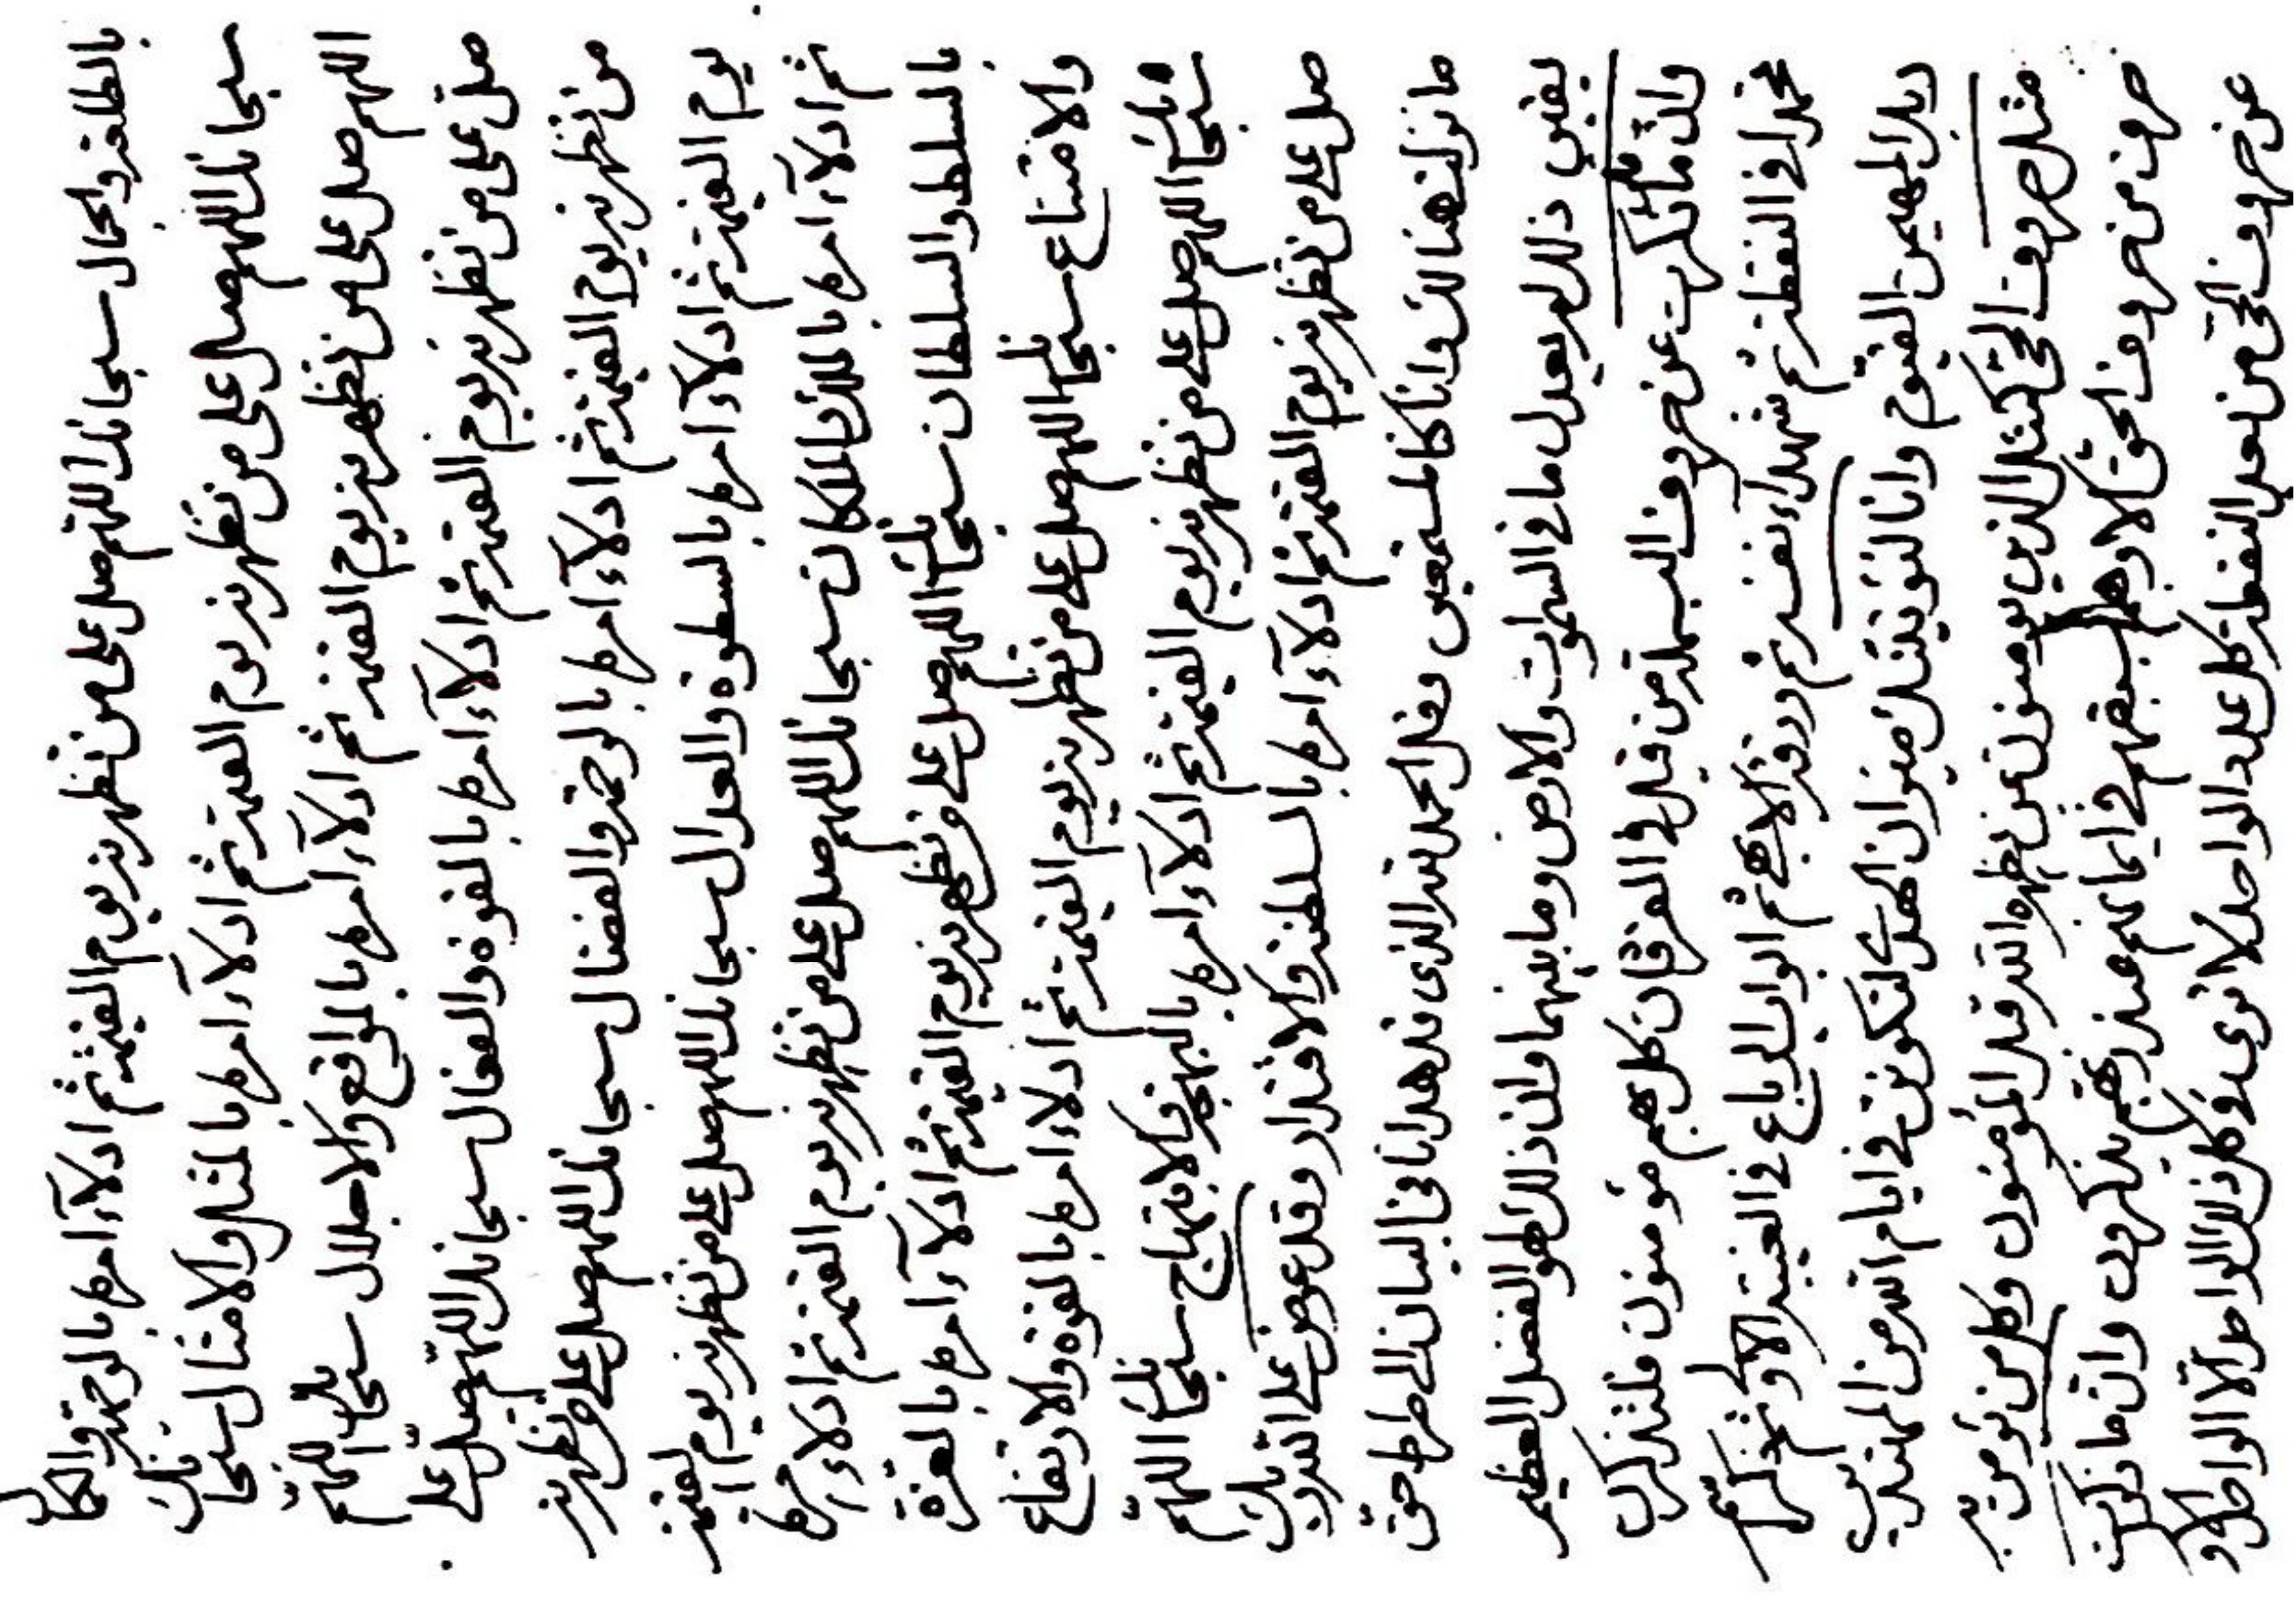 بالطلعة والجمال سبحانك اللهم صل على من تظهرنه يوم القيمة ثم ادلآء امره بالوجهة والكمال
سبحانك اللهم صل على من تظهرنه يوم القيمة ثم ادلآء امره بالمثل والامثال سبحانك
اللهم صل على من تظهرنه يوم القيمة ثم ادلآء امره بالمواقع والاجلال سبحانك اللهم
صل على من تظهرنه يوم القيمة ثم ادلآء امره بالقوة والفعال سبحانك اللهم صل على
من تظهرنه يوم القيمة ثم ادلآء امره بالرحمة والفضال سبحانك اللهم صل على من تظهرنه
يوم القيمة ثم ادلآء امره بالسطوة والعدال سبحانك اللهم صل على من تظهرنه يوم القيمة
ثم ادلآء امره بالملك والملكان سبحانك اللهم صل على من تظهرنه يوم القيمة ثم ادلاء امره
بالسلط والسلطان سبحانك اللهم صل على من تظهرنه يوم القيمة ثم ادلآء امره بالعزة
والامتناع سبحانك اللهم صل على من تظهرنه يوم القيمة ثم ادلاء امره بالقوة والارتفاع
سبحانك اللهم صل على من تظهرنه يوم القيمة ثم ادلآء امره بالبهجة والابتهاج سبحانك اللهم
صل على من تظهرنه يوم القيمة ثم ادلآء امره بالسلطنة والاقتدار وقل عوض على الله ربك
ما نزلت هنالك وانا كنا لمستمعين وقل الحمد لله الذى قد هدانا فى البيان الى صراط حق
يقين ذلك لم يعدل ما فى السموات والارض وما بينهما وان ذلك لهو الفضل العظيم
وان ما ذكرت عن حروف البسملة من قبل فى الفرقان كل هم مؤمنون فلتذكرن
محمدا فى النقطة ثم شهدآء نفسه ثم ورقة الابهى ثم ابواب الرباع فى الغيبة الاولى ثم لتذكرن
المهيمن القيوم وانا لنؤتينك ميزان الهدى لتكونن فى ايام الله من المهتدين
مثل حروف الحى كمثل الذين يؤمنون بمن يظهره الله قبل المؤمنون وكل من يؤمن به
حرف من حروف الحق الا وهم بسبقهم فى ايمانهم عند ربهم يذكرون وان ما ذكرت
عن حروف الحى من بعد النقطة كل عدد الواحد لا ترى فى كل ذلك الواحد الا الواحد الاول